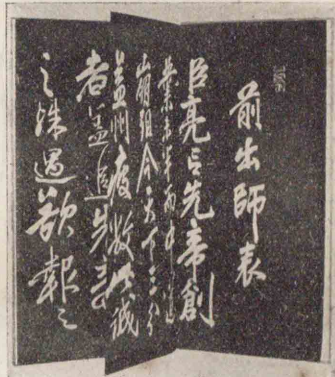 前出師表
臣亮言先帝創
業未半而中道
崩殂今天下三分
益州疲敝此誠
者蓋追先帝
之殊遇欲報之